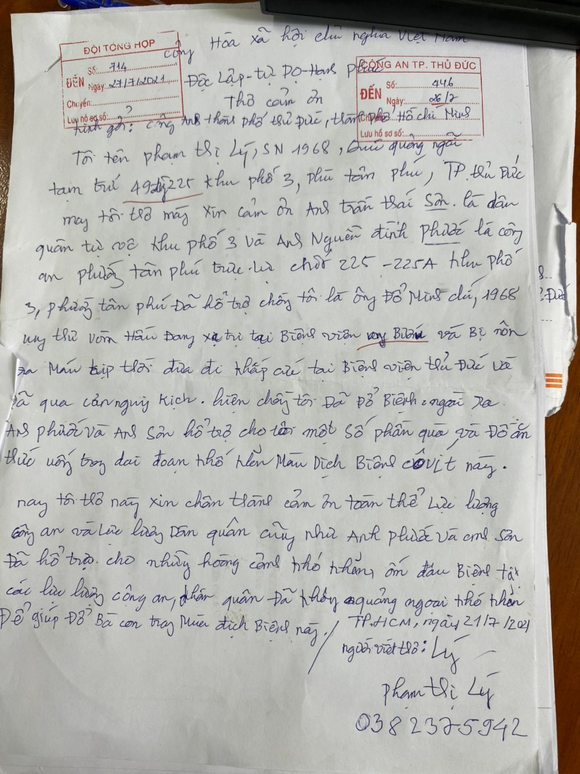 Cộng Hòa xã hội chủ nghĩa Việt Nam
ĐỘI TỔNG HỢP
ĐẾN
Số: 714
Ngày: 27/7/2021
Chuyển:
Lưu hồ sơ số: ?
Độc Lập - tự Do - Hanh phúc
CÔNG AN TP. THỦ ĐỨC
ĐẾN
Số: 446
Ngày: 26/7
Chuyển:
Lưu hồ sơ số:
Thơ cảm ơn
kính gởi: Công An thành phố thủ Đức, thành phố Hồ chí Minh
Tôi tên phạm thị Lý, SN 1968, quảng ngãi
tạm trú 225 khu phố 3, phú tân phú, TP thủ Đức
nay tôi thơ này xin cảm ơn Anh trần thái Sơn là dân
quân tự vệ khu phố 3 và Anh Nguễn đình phước là công
an phường tân phú trực chốt 225 - 225A khu phố
3, phường tân phú Đã hổ trợ chồng tôi là ông Đỗ Minh chí, 1968
ung thư vòm Hầu Đang xạ trị tại Biênh viên ung Biếu và Bị nôn
ra Máu kịp thời đưa đi khấp cứu tại Biênh viện thủ Đức và
đã qua cản nguy kịch. hiên chồng tôi Đã Đở Biênh. ngoài ra
Anh phước và Anh Sơn hổ trợ cho tôi một số phần quà và Đồ ăn
thức uống trong dai đoạn khó khăn Màu Dịch Biênh côvit này.
nay tôi thơ này xin chân thành cảm ơn toàn thể Lực lượng
công an và Lực lượng Dân quân cũng như Anh phước và anh Sơn
Đã hổ trợ cho những hoàng cảnh khó khăn, ốm đâu Biênh tật
các lưc lương công an, dân quân Đã không quảng ngoại khó khăn
Để giúp Đở Bà con trong Mùa địch Biênh này.
TP.HCM, ngày 21/7/2021
người viết thơ: Lý
phạm thị Lý
0382375942